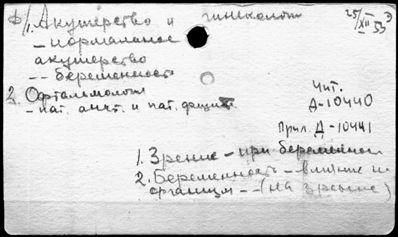 1. Акушерство и гинеколог
25/XII 55
- нормальное
акушерство
-- беременность
2. Офтальмолог
- пат. анат. и пат. физ.
Чит.
Д-10440
Прил. Д-10441
1. Зрение - при беременности
2. Беременность - влияние на
организм -- (на зрение)